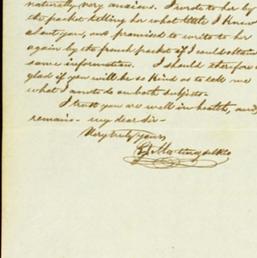 naturally very anxious. I wrote to her by
the packet telling her what little I knew
about you, and promised to write to her
again by the french packet if I could obtain
some information. I should therefore be
glad if you will be so kind as to tell me
what I am to do on both subjects.
I trust you are well in health, and
remain - my dear sir -
Very truly yours